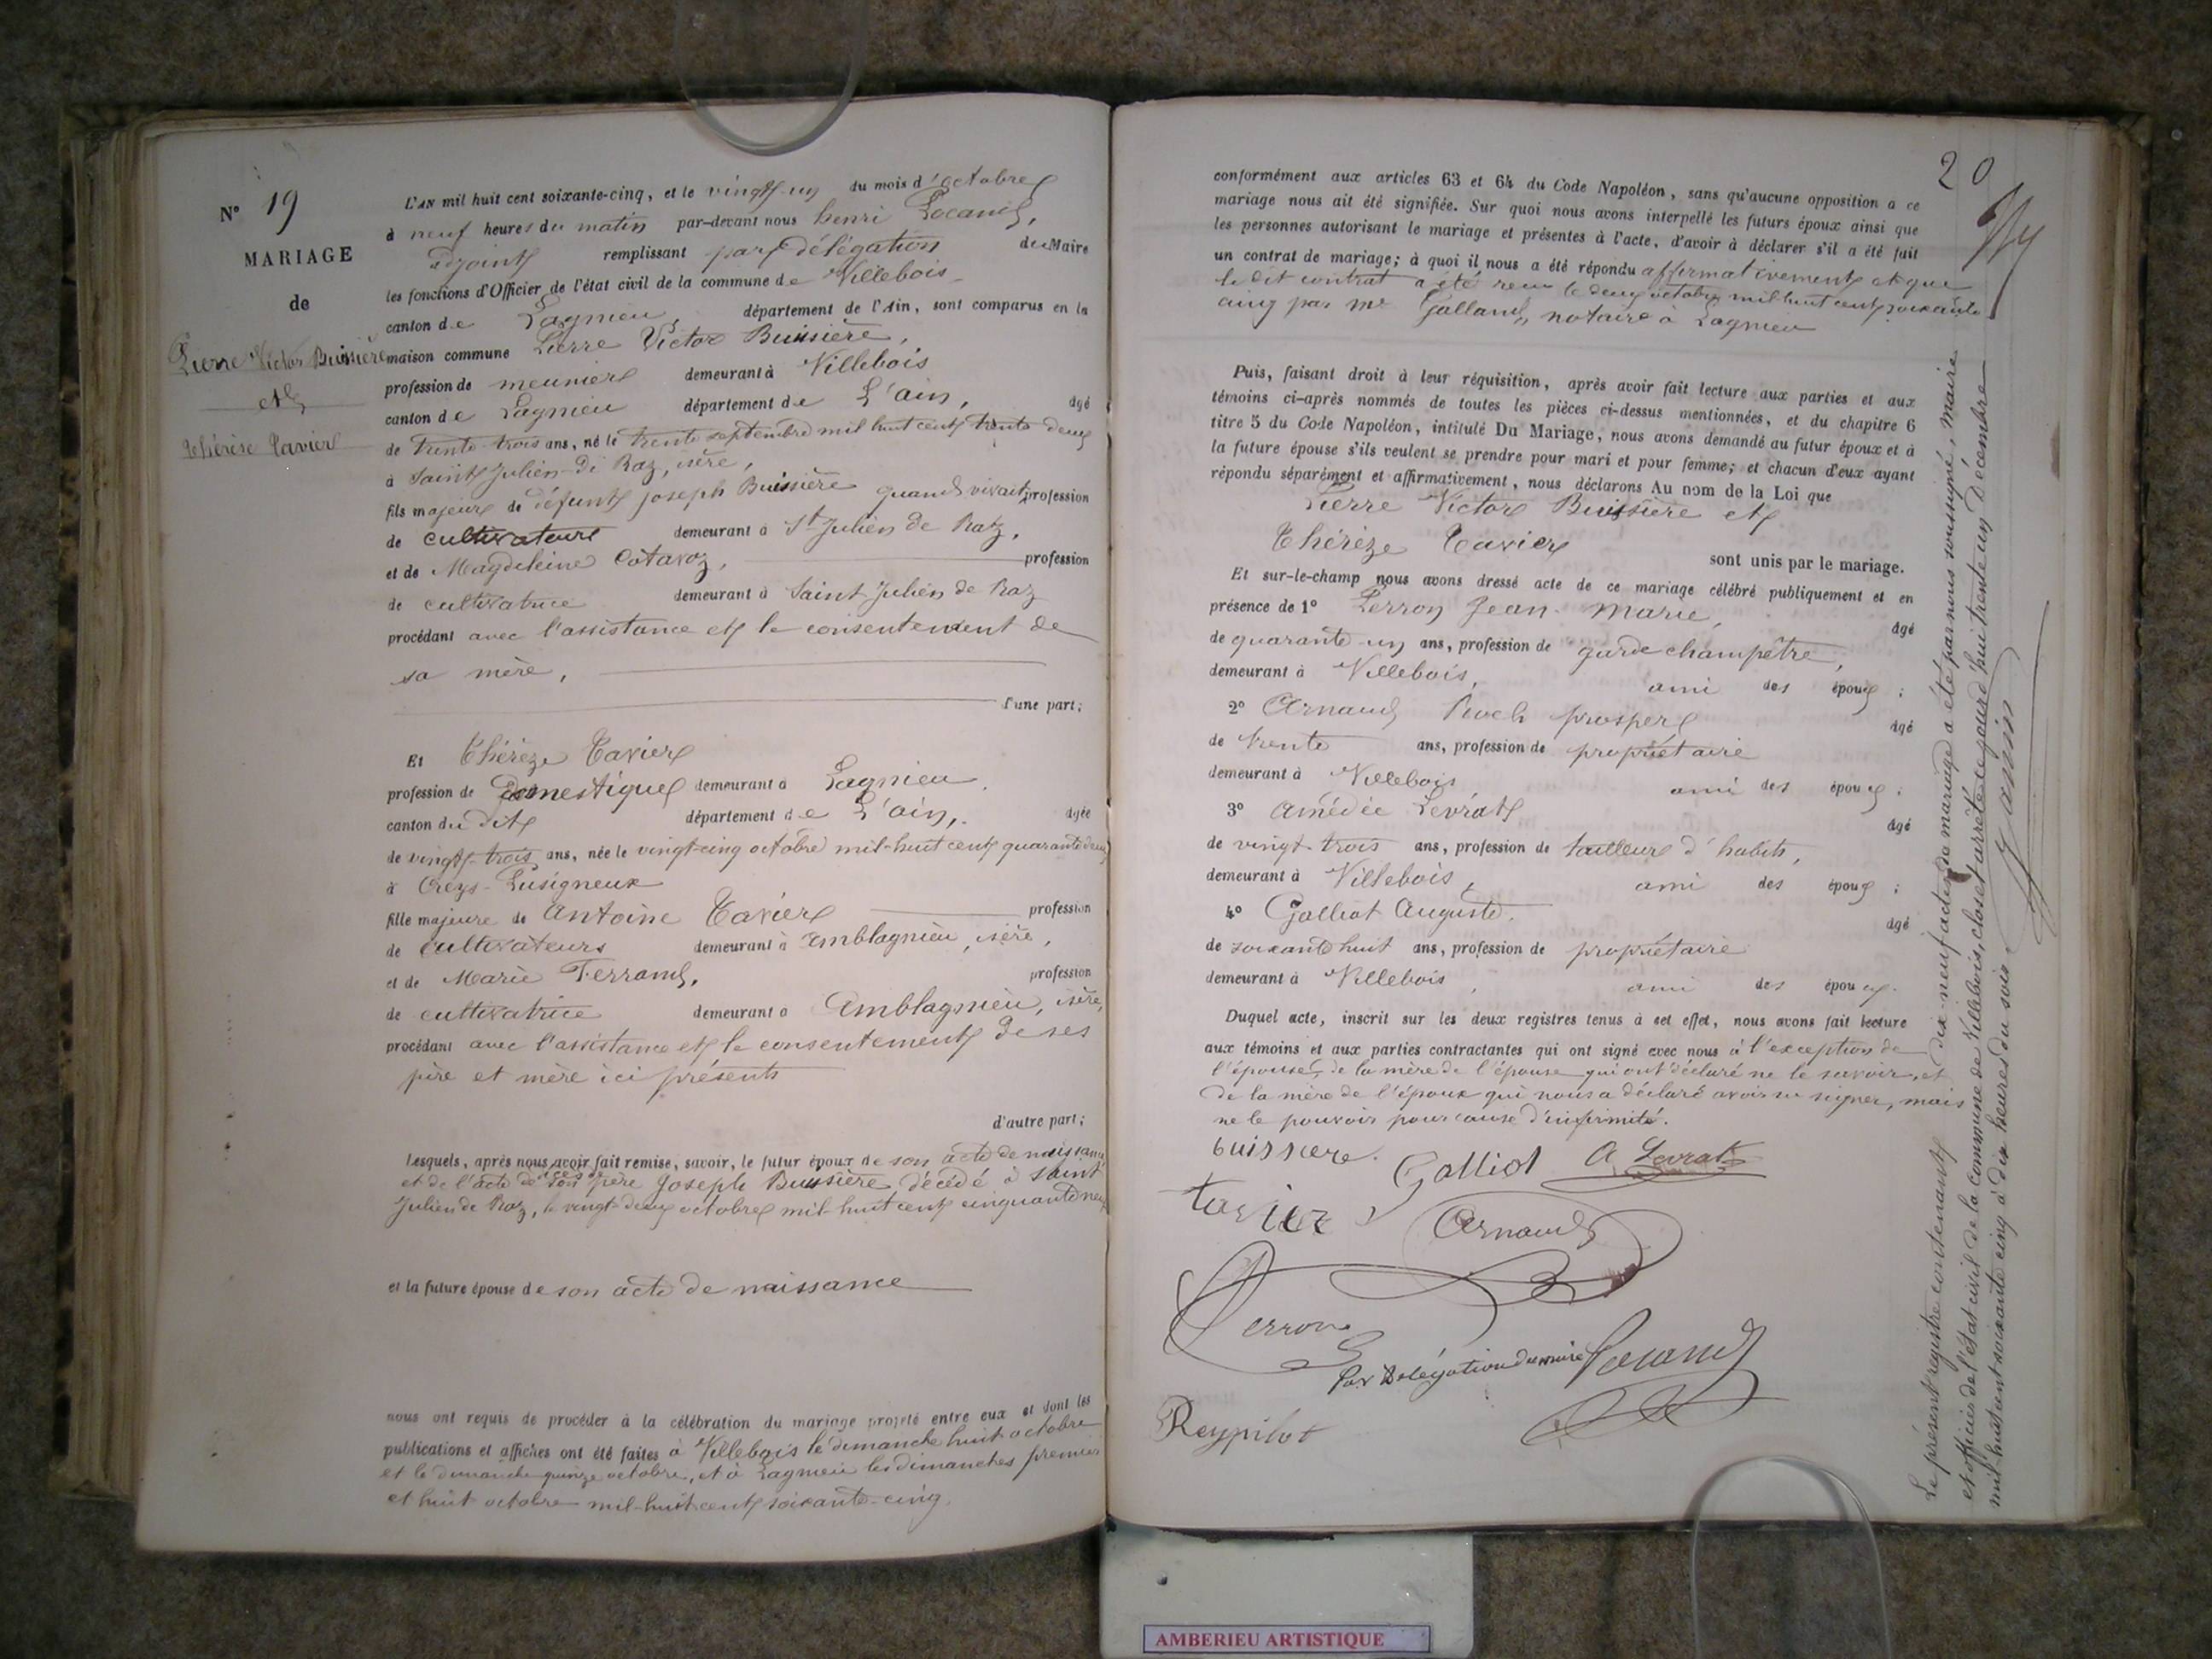 N° 19
MARIAGE
de
Pierre Victor Buissière
et
Thérèze Tavier
L'AN mil huit cent soixante-cinq, et le vingt-un du mois d'octobre
à neuf heures du matin par-devant nous henri Locand,
adjoint remplissant par délégation du Maire
les fonctions d'Officier de l'état civil de la commune de Villebois
canton de Lagnieu, département de l'Ain, sont comparus en la
maison commune Pierre Victor Buissière,
profession de meunier demeurant à Villebois
canton de Lagnieu département de L'ain, âgé
de trente-trois ans, né le trente septembre mil huit cent trente deux
à Saint Julien-de Raz, isère,
fils majeur de défunt joseph Buissière quand vivait, profession
de cultivateur demeurant à St Julien de Ratz,
et de Magdeleine Cotavoz, profession
de cultivatrice demeurant à Saint Julien de Raz
procédant avec l'assistance et le consentement de
sa mère,
d'une part;
Et Thérèze Tavier
profession de Domestique demeurant à Lagnieu
canton du dit département de L'ain, âgée
de vingt-trois ans, née le vingt-cinq octobre mil-huit cent quarante deux
à Creys-Pusigneux
fille majeure de Antoine Tavier profession
de cultivateurs demeurant à Amblagnieu, isère,
et de Marie Ferrand, profession
de cultivatrice demeurant à Amblagnieu, isère,
procédant avec l'assistance et le consentement de ses
père et mère ici présents
d'autre part;
Lesquels, après nous avoir fait remise, savoir, le futur époux de son acte de naissance
et de l'acte de décès de son père Joseph Buissière décédé à Saint
Julien de Raz, le vingt-deux octobre mil-huit cent cinquante neuf
et la future épouse de son acte de naissance
nous ont requis de procéder à la célébration du mariage projeté entre eux et dont les
publications et affiches ont été faites à Villebois le dimanche huit octobre
et le dimanche quinze octobre, et à Lagnieu les dimanches premier
et huit octobre mil-huit cent soixante-cinq.
20
conformément aux articles 63 et 64 du Code Napoléon, sans qu'aucune opposition à ce
mariage nous ait été signifiée. Sur quoi nous avons interpellé les futurs époux ainsi que
les personnes autorisant le mariage et présentes à l'acte, d'avoir à déclarer s'il a été fait
un contrat de mariage; à quoi il nous a été répondu affirmativement et que
le dit contrat a été reçu le deux octobre mil huit cent soixante
cinq par me Galland, notaire à Lagnieu
Puis, faisant droit à leur réquisition, après avoir fait lecture aux parties et aux
témoins ci-après nommés de toutes les pièces ci-dessus mentionnées, et du chapitre 6
titre 5 du Code Napoléon, intitulé Du Mariage, nous avons demandé au futur époux et à
la future épouse s'ils veulent se prendre pour mari et pour femme; et chacun d'eux ayant
répondu séparément et affirmativement, nous déclarons Au nom de la Loi que
Pierre Victor Buissière et
Thérèze Tavier sont unis par le mariage.
Et sur-le-champ nous avons dressé acte de ce mariage célébré publiquement et en
présence de 1° Perron Jean-Marie, âgé
de quarante-un ans, profession de garde champêtre,
demeurant à Villebois, ami des époux;
2° Arnaud Roch prosper âgé
de trente ans, profession de propriétaire
demeurant à Villebois ami des époux;
3° Amédée Levrat âgé
de vingt-trois ans, profession de tailleur d'habits,
demeurant à Villebois, ami des époux;
4° Galliot Auguste. âgé
de soixante huit ans, profession de propriétaire
demeurant à Villebois, ami des époux.
Duquel acte, inscrit sur les deux registres tenus à cet effet, nous avons fait lecture
aux témoins et aux parties contractantes qui ont signé avec nous à l'exception de
l'épouse, de la mère de l'épouse qui ont déclaré ne le savoir, et
de la mère de l'époux qui nous a déclaré avoir su signer, mais
ne le pouvoir pour cause d'infirmité.
buissiere. Galliot A Levrat
tavier Arnaud
Perron
Par Délégation du maire Locand
Reypilot
Le présent registre contenant dix-neuf actes de mariage a été par nous soussigné, maire
et officier de l'état civil de la commune de Villebois, clos et arrêté cejourd'hui trente un Décembre
mil-huit cent soixante cinq à dix heures du soir
AMBERIEU ARTISTIQUE